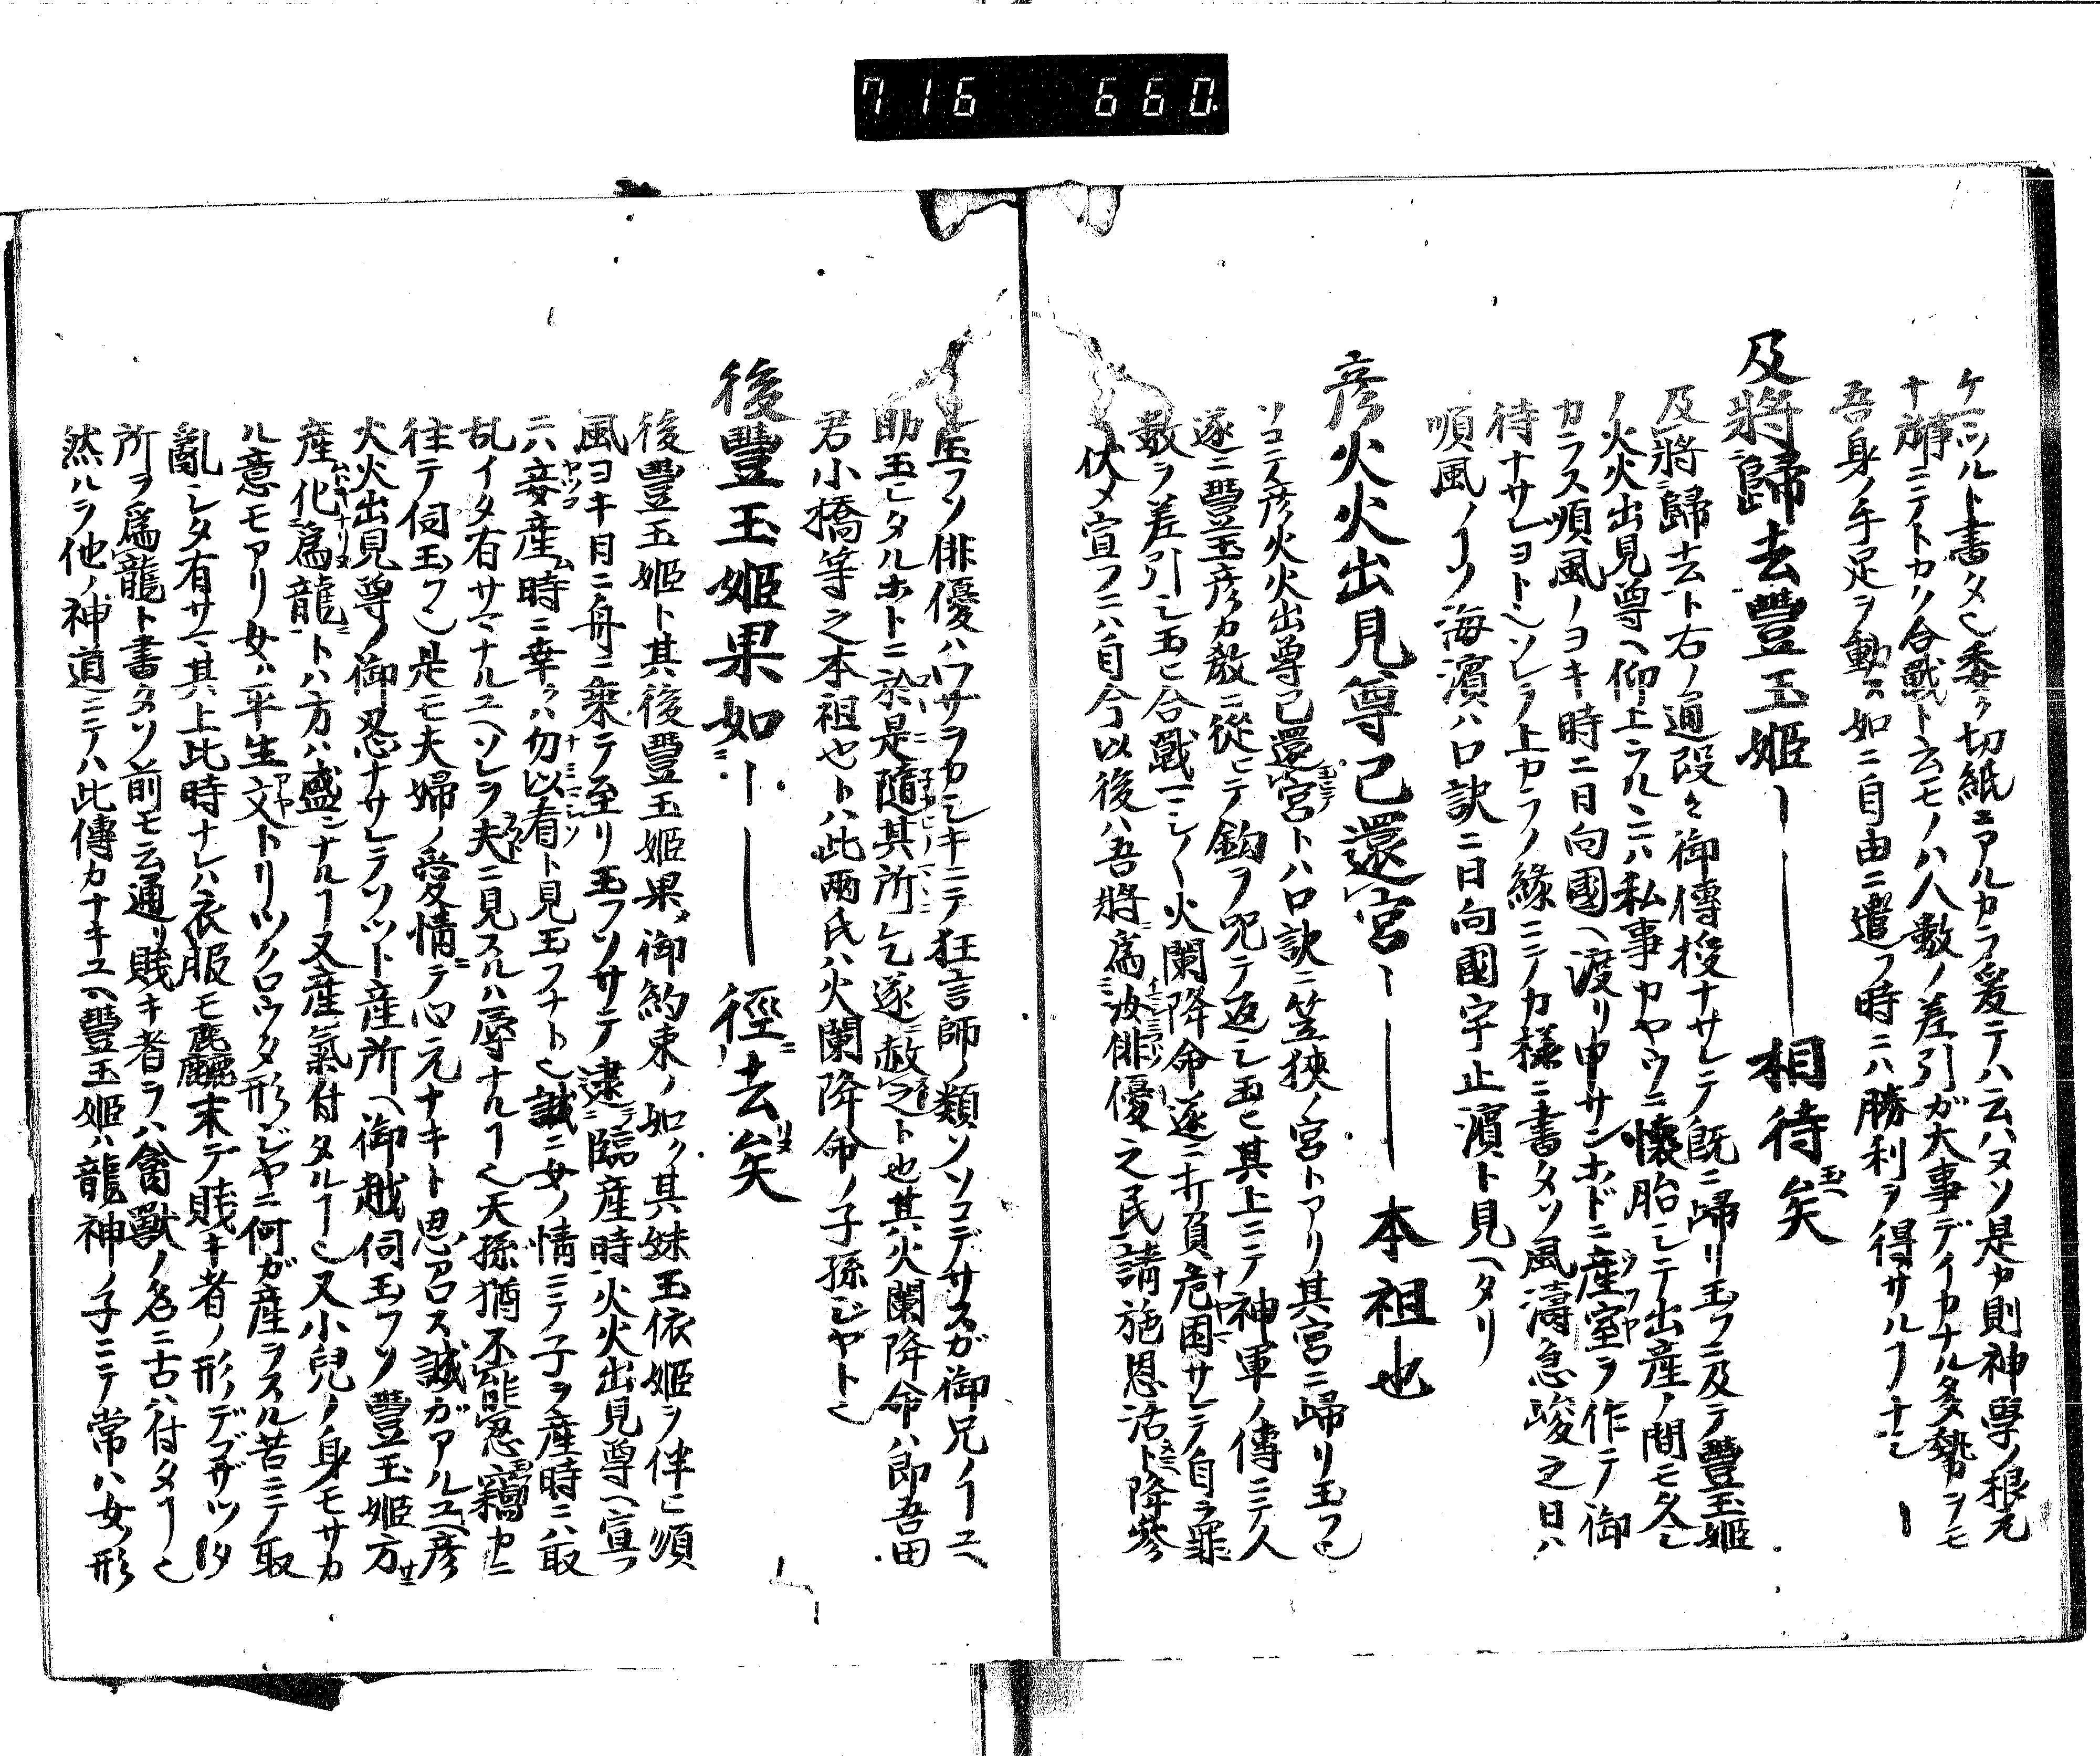 716 660.
ケニツルト書タヒ委ク切紙ニアルカラ爰テハ云ハヌソ是カ則神學ノ根元
ナ辭ニテトカク合戰ト云モノハ人數ノ差引ガ大事デイカナル多勢ヲモ
吾身ノ手足ヲ動ス如ニ自由ニ遣フ時ニハ勝利ヲ得サルヿナシ
及將歸去豐玉姬ー――相待矣
及將歸去ト右ノ通段々御傳授ナサレテ既ニ歸リ玉フニ及テ豐玉姬
ノ火火出見尊ヘ仰上ラルニハ私事カヤウニ懷胎シテ出産ノ間モ久シ
カラス順風ノヨキ時ニ日向國ヘ渡リ申サンホドニ産室ヲ作テ御
待ナサレヨトヒソレラ上カラノ緣ニテカ樣ニ書タソ風濤急峻之日ハ
順風ノヿソ海濱ハ口訣ニ日向國宇止濱ト見ヘタリ
彥火火出見尊已還宮ー――本祖也
ソコテ彥火火出尊已還宮トハ口訣ニ笠狹ノ宮トアリ其宮ニ歸リ玉フヒ
遂ニ豐玉彥カ敎ニ從ヒテ鈎ヲ咒テ返シ玉ヒ其上ニテ神軍ノ傳ニテ人
數ヲ差引シ玉ヒ合戰ニシ〱火闌降命遂ニ打負危困サレテ自ラ罪
伏メ宣フニハ自今以後ハ吾將爲汝俳優之民請施恩活ト降參
玉フソ俳優ハワザヲカシキニテ狂言師ノ類ソソコデサスガ御兄ノヿユヘ
助玉レタルホトニ於是隨其所乞遂赦之ト也其火闌降命ハ郎吾田
君小橋等之本祖也トハ此兩氏ハ火闌降命ノ子孫ジヤトヒ
後豐玉姬果如ー――徑去矣
後豐玉姬ト其後豐玉姬果〆御約束ノ如ク其妹玉依姬ヲ伴ヒ順
風ヨキ目ニ舟ニ乘テ至リ玉フソサテ逮臨産時火火出見尊ヘ宣フ
ニハ妾産時ニ幸クハ勿以看ト見玉フナトヒ誠ニ女ノ情ニテ子ヲ産時ニハ取
乱イタ有サマナルユヘソレヲ夫ニ見スルハ辱ナルヿヒ天孫猶不能忍竊カニ
往テ伺玉フヒ是モ夫婦ノ愛情デ心元ナキト思召ス誠ガアルユヘ彥
火火出見尊ノ御忍ナサレテソツト産所ヘ御越伺玉フソ豐玉姬方
産化爲龍トハ方ハ盛ニナルヿ又産氣付タルヿヒ又小兒ノ身モサカ
ル意モアリ女ハ平生文トリツクロウタ形ジヤニ何ガ産ヲスル苦ニテ取
亂レタ有サマ其上此時ナレハ衣服モ麁末デ賎キ者ノ形デゴザツタ
所ヲ爲龍ト書タソ前モ云通リ賎キ者ヲハ禽獸ノ名ニ古ハ付タヿヒ
然ルヲ他ノ神道ニテハ此傳カナキユヘ豐玉姬ハ龍神ノ子ニテ常ハ女ノ形